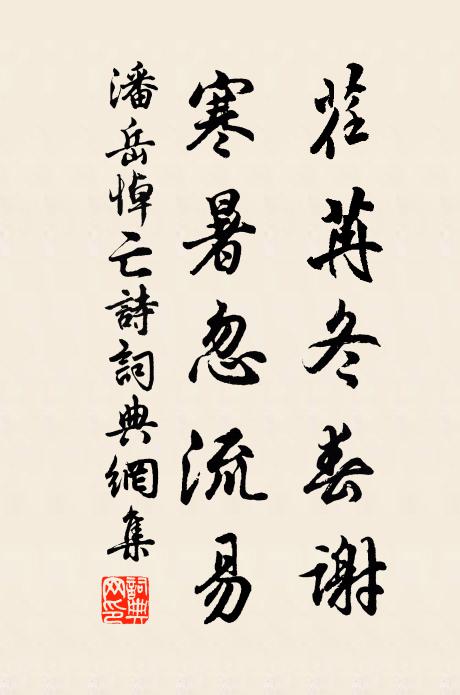 荏苒冬春謝
寒暑忽流易
潘岳悼亡詩詞典網集
詞典网印